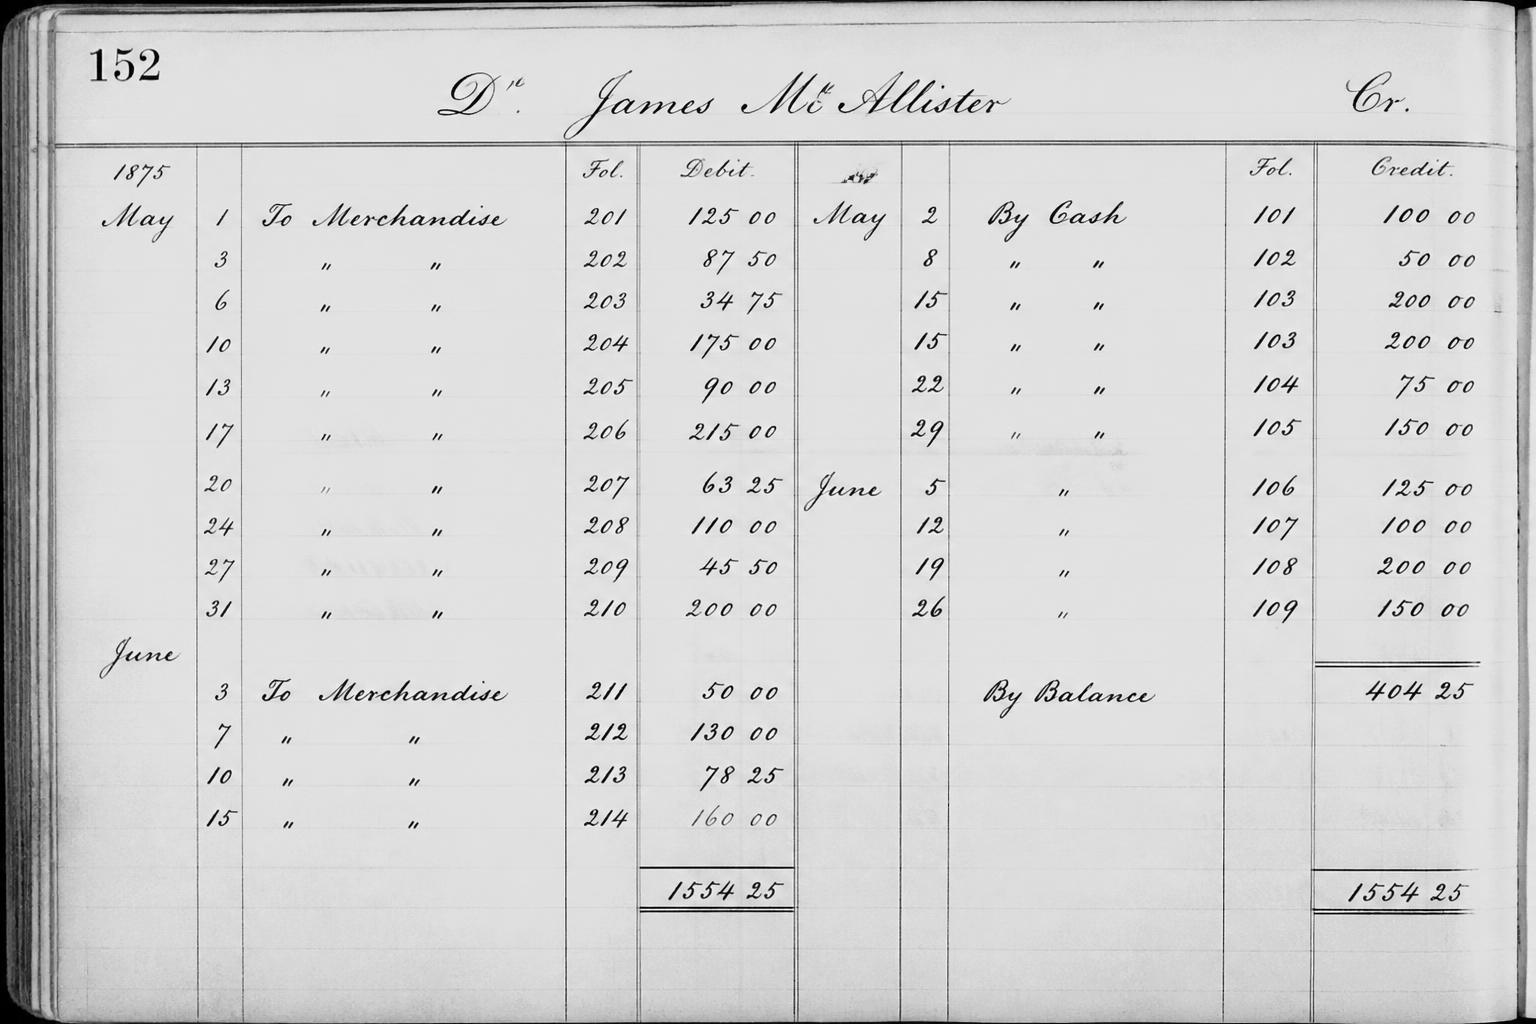 152
Dr. James Mc Allister Cr.
1875 Fol. Debit. Fol. Credit.
May 1 To Merchandise 201 125 00 May 2 By Cash 101 100 00
3 " " 202 87 50 8 " " 102 50 00
6 " " 203 34 75 15 " " 103 200 00
10 " " 204 175 00 15 " " 103 200 00
13 " " 205 90 00 22 " " 104 75 00
17 " " 206 215 00 29 " " 105 150 00
20 " " 207 63 25 June 5 " 106 125 00
24 " " 208 110 00 12 " 107 100 00
27 " " 209 45 50 19 " 108 200 00
31 " " 210 200 00 26 " 109 150 00
June
3 To Merchandise 211 50 00 By Balance 404 25
7 " " 212 130 00
10 " " 213 78 25
15 " " 214 160 00
1554 25 1554 25